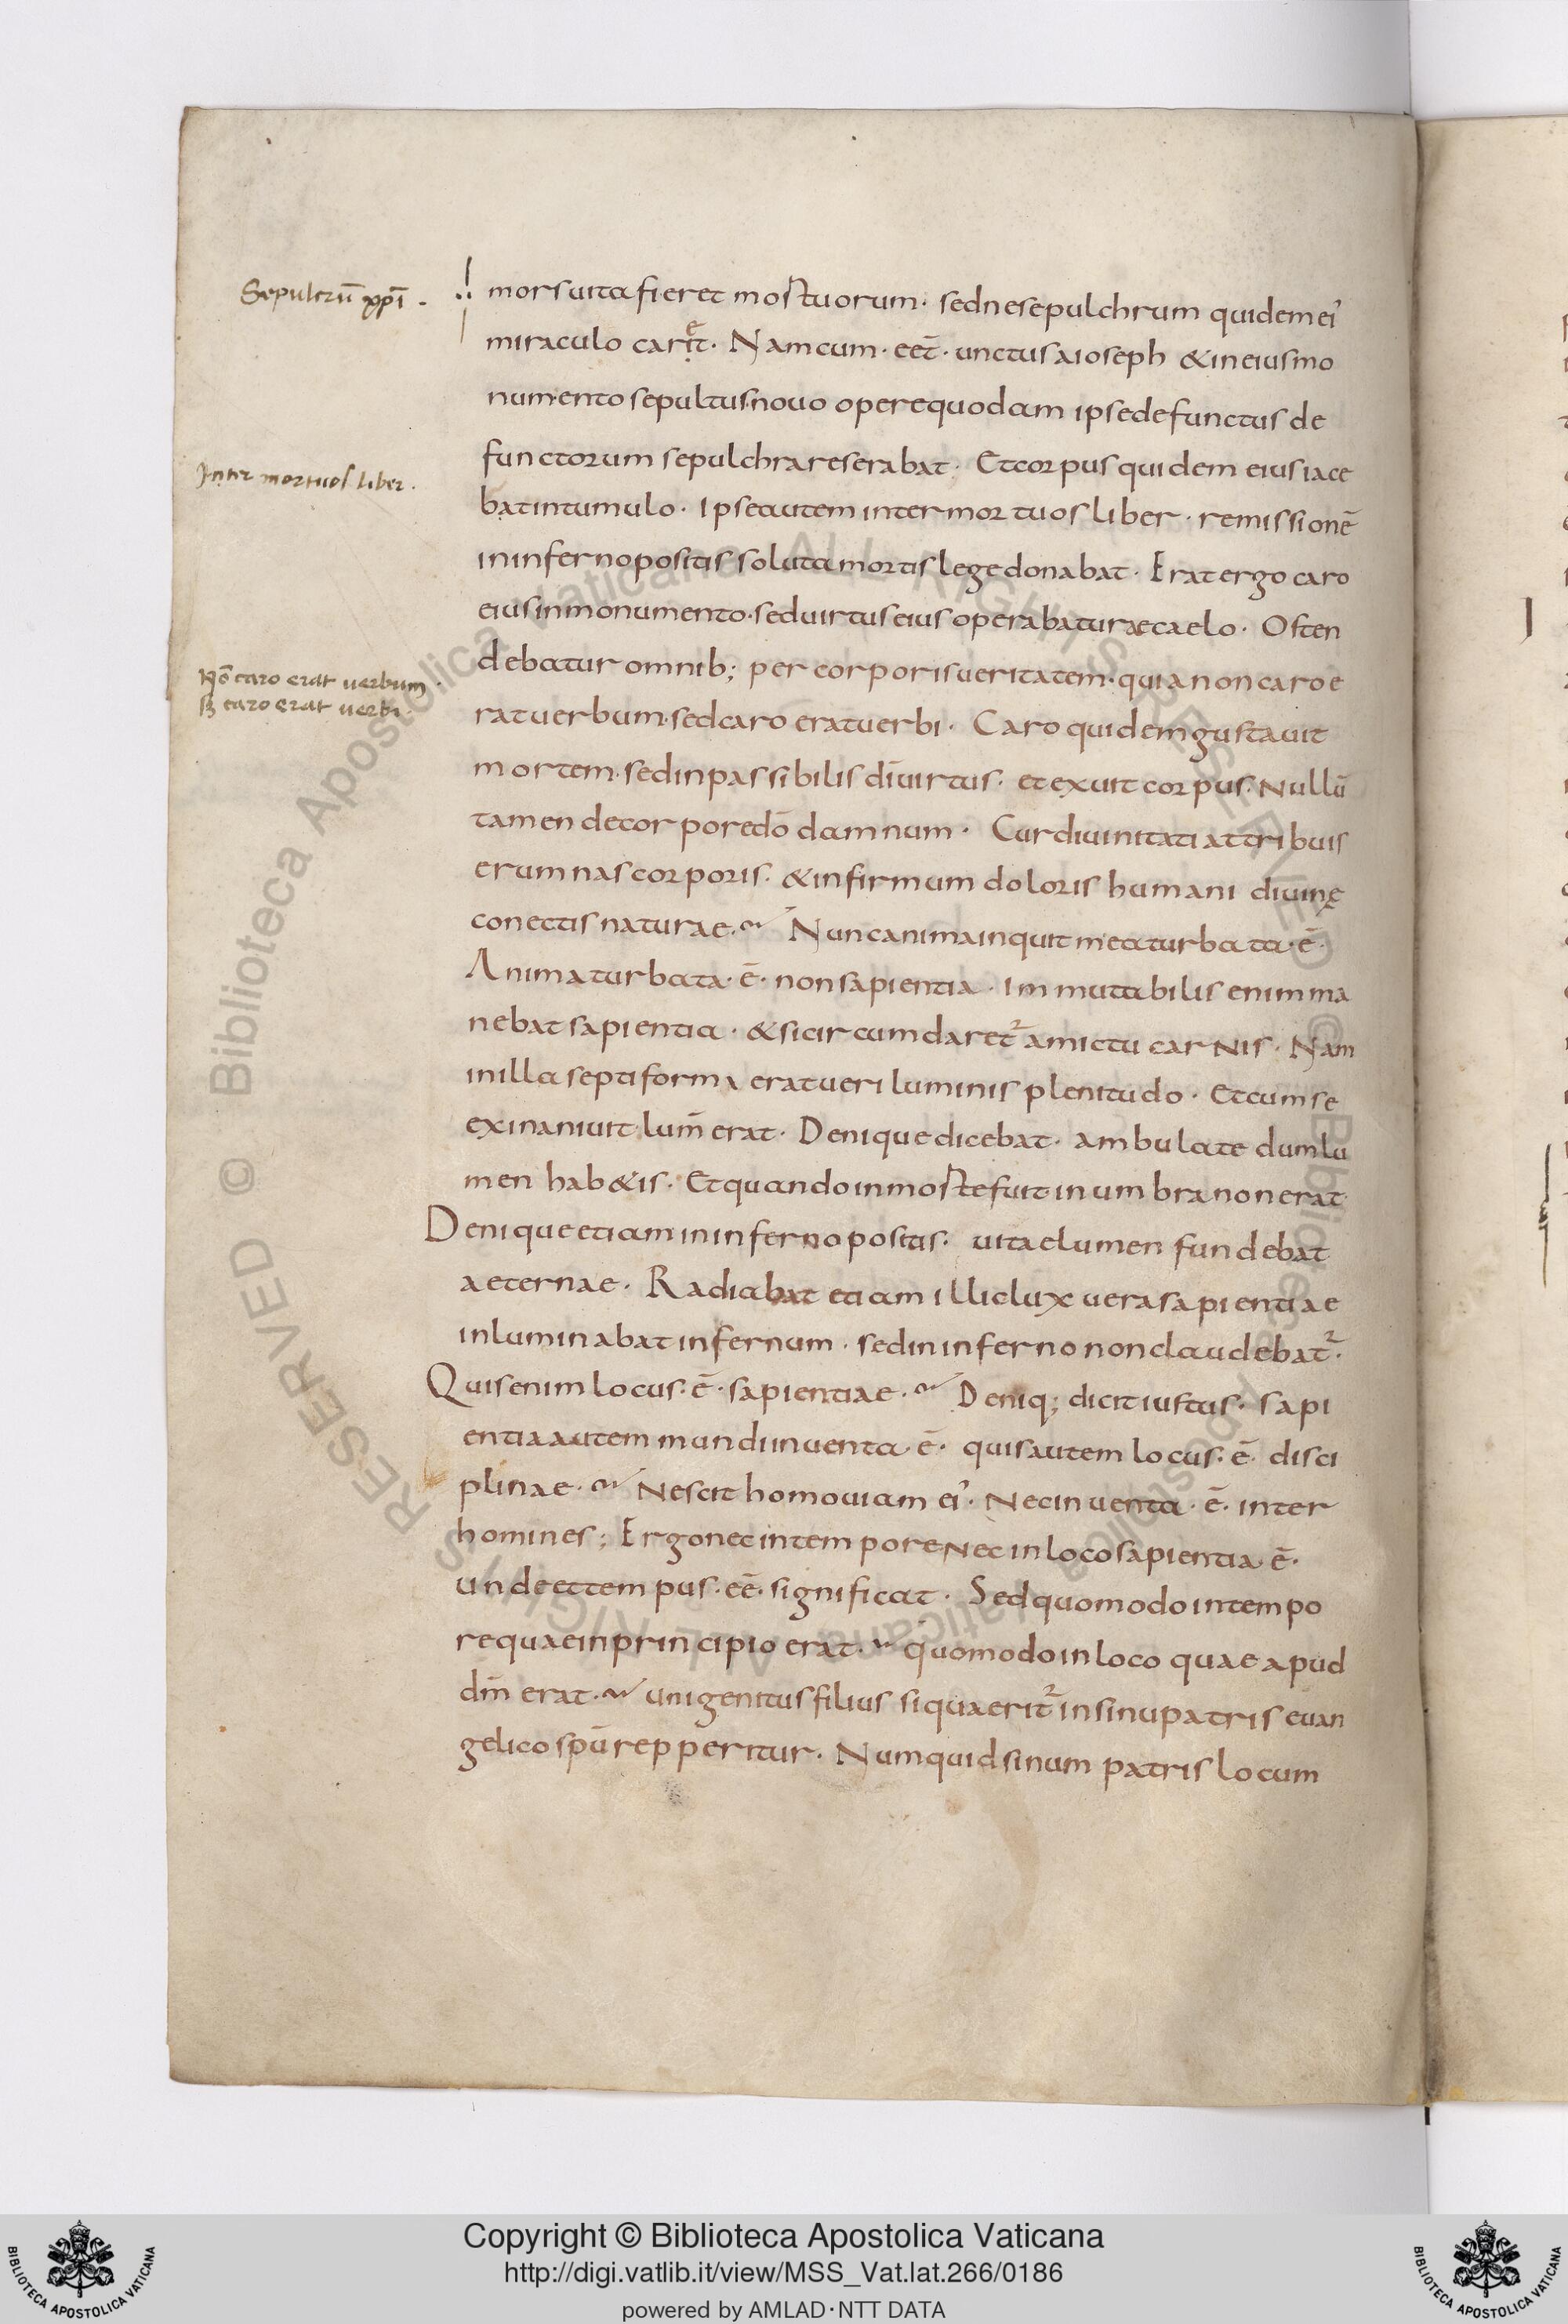 Sepulcrū xp̄i .
Inter mortuos liber .
Nō caro erat uerbum .
sꝫ caro erat uerbi .
mors uita fieret mortuorum · sed ne sepulchrum quidem ei'
miraculo carit · Nam cum · eet̄ · unctus a ioseph & in eius mo
numento sepultus · nouo opere quodam ipse defunctus de
functorum sepulchra reserabat · Et corpus quidem eius iace
bat in tumulo · Ipse autem inter mortuos liber · remissionē
in inferno positis soluta mortis lege donabat · Erat ergo caro
eius in monumento · sed uirtus eius operabatur æ caelo · Osten
debatur omnib; per corporis ueritatem · quia non caro e
rat uerbum · sed caro erat uerbi · Caro quidem gustauit
mortem · sed inpassibilis dī uirtus · et exuit corpus · Nullū
tamen de corpore dō damnum · Cur diuinitati attribuis
erumnas corporis · & infirmum doloris humani diuinę
conectis naturae · Nunc anima inquit mea turbata · ē ·
Anima turbata · ē · non sapientia · Immutabilis enim ma
nebat sapientia · & si circumdaret᷑ amictu carnis · Nam
in illa septiforma erat ueri luminis plenitudo · Et cum se
exinaniuit lum̄ erat · Denique dicebat · ambulate dum lu
men hab&is · Et quando in morte fuit · in umbra non erat ·
Denique etiam in inferno positis · uitae lumen fundebat
aeternae · Radiabat etiam illic lux uera sapientiae
inluminabat infernum · sed in inferno non claudebat᷑ ·
Quis enim locus · ē · sapientiae · Deniq; dicit iustus · sapi
entia autem mundi inuenta · ē · quis autem locus · ē · disci
plinae · Nescit homo uiam ei' · Nec inuenta · ē · inter
homines ; Ergo nec in tempore nec in loco sapientia · ē ·
unde et tempus · eē · significat · Sed quomodo in tempo
re quae in principio erat · quomodo in loco quae apud
dm̄ erat · unigenitus filius si quaerit᷑ in sinu patris euan
gelico spū repperitur · Numquid sinum patris locum
© Biblioteca Apostolica Vaticana ALL RIGHTS RESERVED
Copyright © Biblioteca Apostolica Vaticana
http://digi.vatlib.it/view/MSS_Vat.lat.266/0186
powered by AMLAD·NTT DATA
BIBLIOTECA APOSTOLICA VATICANA
BIBLIOTECA APOSTOLICA VATICANA